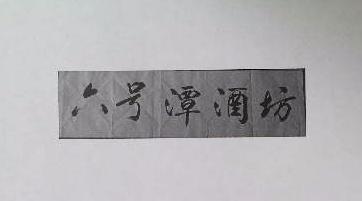 六号潭酒坊